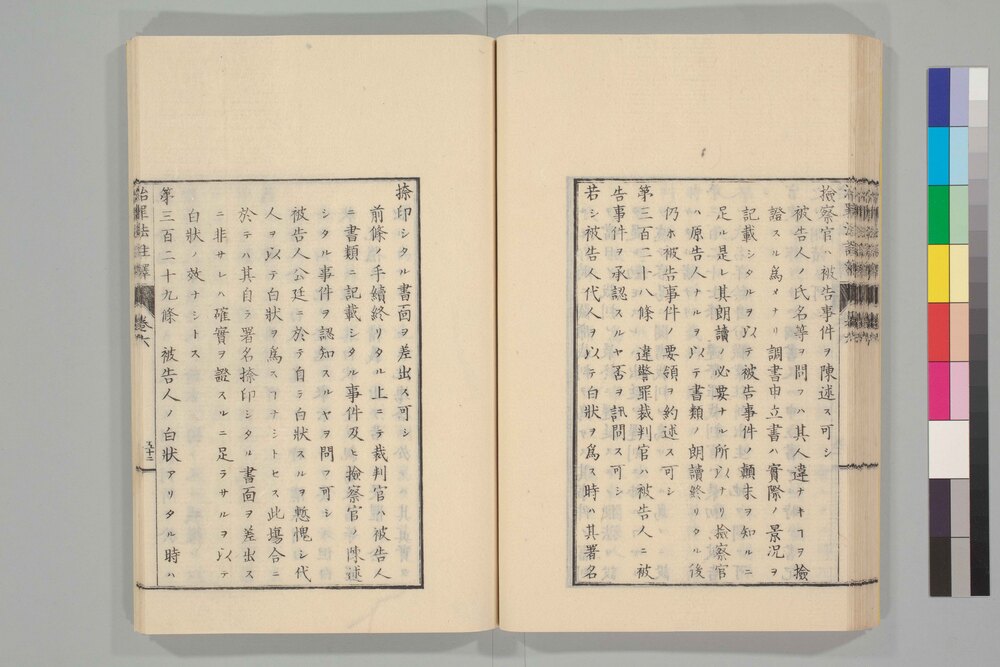 檢察官ハ被告事件ヲ陳述ス可シ
被告人ノ氏名等ヲ問フハ其人違ナキヿヲ檢
證スル爲メナリ調書申立書ハ實際ノ景況ヲ
記載シタルヲ以テ被告事件ノ顛末ヲ知ルニ
足ル是レ其朗讀ノ必要ナル所以ナリ檢察官
ハ原告人ナルヲ以テ書類ノ朗讀終リタル後
仍ホ被告事件ノ要領ヲ約述ス可シ
第三百二十八條 違警罪裁判官ハ被告人ニ被
告事件ヲ承認スルヤ否ヲ訊問ス可シ
若シ被告人代人ヲ以テ白狀ヲ爲ス時ハ其署名
捺印シタル書面ヲ差出ス可シ
前條ノ手續終リタル上ニテ裁判官ハ被告人
ニ書類ニ記載シタル事件及ヒ檢察官ノ陳述
シタル事件ヲ認知スルヤヲ問フ可シ
被告人公廷ニ於テ自ラ白狀スルヲ慙愧シ代
人ヲ以テ白狀ヲ爲スヿナシトセス此塲合ニ
於テハ其自ラ署名捺印シタル書面ヲ差出ス
ニ非サレハ確實ヲ證スルニ足ラサルヲ以テ
白狀ノ效ナシトス
第三百二十九條 被告人ノ白狀アリタル時ハ
治罪法註釋 卷六